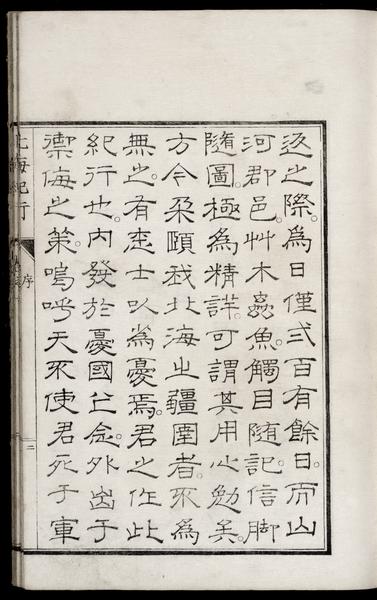 返之際。為日僅弐百有餘日。而山
河郡邑。艸木蟲魚。觸目隨記。信脚
隨圖。極為精詳。可謂其用心勉矣。
方今朶頤我北海之疆圉者。不為
無之。有志士以為憂焉。君之作此
紀行也。內發於憂國之念。外出于
禦侮之策。嗚呼天不使君死于軍
北海紀行
序
二